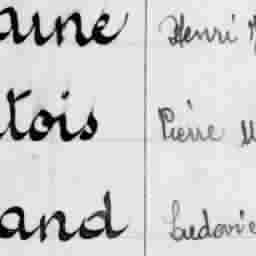 aine Henri
tois Pierre
and Ludovic